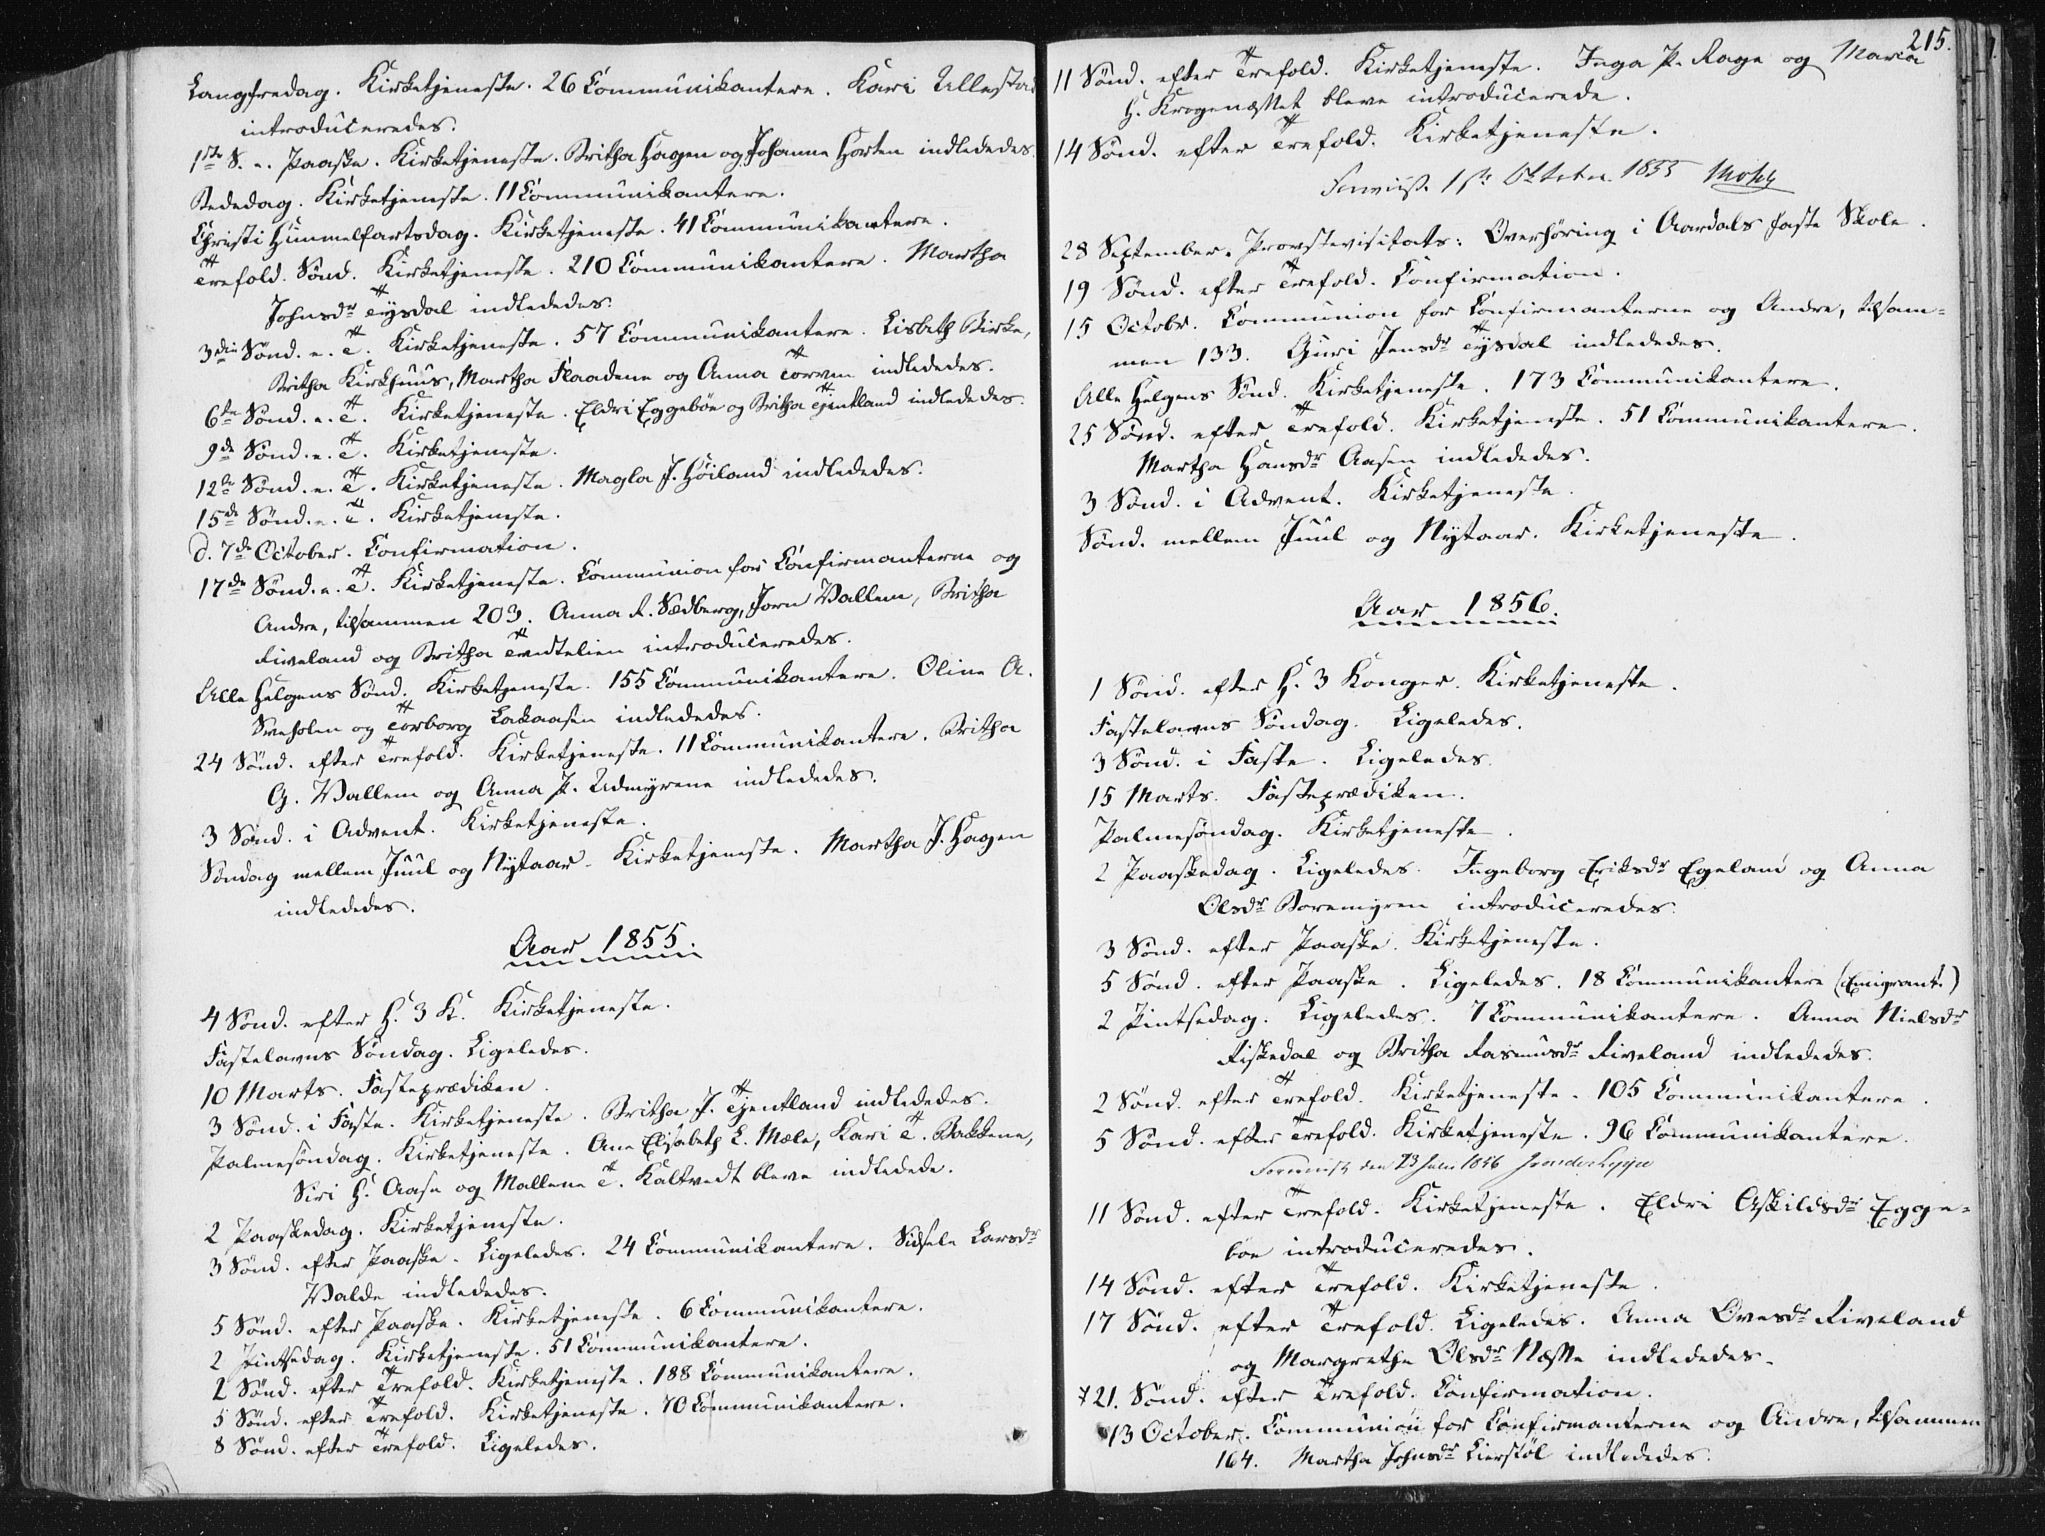 Langfredag. Kirketjeneste. 26 Communikantere. Kari Ullestad
introduceredes.
1ste S. e. Paaske. Kirketjeneste. Britha Hagen og Johanne Horten indlededes.
Bededag. Kirketjeneste. 11 Communikantere.
Christi Himmelfartsdag. Kirketjeneste. 41 Communikantere.
Trefold. Sønd. Kirketjeneste. 210 Communikantere. Martha
Johnsdr Tysdal indlededes.
3die Sønd. e. T. Kirketjeneste. 57 Communikantere. Lisbeth Birke,
Britha Kirkhuus, Martha Flaadene og Anna Torven indlededes.
6te Sønd. e. T. Kirketjeneste. Eldri Eggebøe og Britha Tjentland indlededes.
9de Sønd. e. T. Kirketjeneste.
12te Sønd. e. T. Kirketjeneste. Magla J. Høiland indlededes.
15de Sønd. e. T. Kirketjeneste.
d. 7de October. Confirmation.
17de Sønd. e. T. Kirketjeneste. Communion for Confirmanterne og
Andre, tilsammen 203. Anna R. Sedberg, Jorn Vallem, Britha
Riveland og Britha Tvedtelien introduceredes.
Alle Helgens Sønd. Kirketjeneste. 155 Communikantere. Oline A.
Sveholen og Torborg Lakaasen indlededes.
24 Sønd. efter Trefold. Kirketjeneste. 11 Communikantere. Britha
G. Vallem og Anna P. Udmyrene indlededes.
3 Sønd. i Advent. Kirketjeneste.
Søndag mellem Juul og Nytaar. Kirketjeneste. Martha J. Hagen
indlededes.
Aar 1855.
4 Sønd. efter H. 3 K. Kirketjeneste.
Fastelavns Søndag. Ligeledes.
10 Marts. Fasteprædiken.
3 Sønd. i Faste. Kirketjeneste. Britha J. Tjentland indlededes.
Palmesøndag. Kirketjeneste. Ane Elisabeth L. Mæle, Kari T. Bakkene,
Siri H. Aase og Mallene T. Kaltvedt bleve indledede.
2 Paaskedag. Kirketjeneste.
3 Sønd. efter Paaske. Ligeledes. 24 Communikantere. Sidsele Larsdr
Valde indlededes.
5 Sønd. efter Paaske. Kirketjeneste. 6 Communikantere.
2 Pintsedag. Kirketjeneste. 51 Communikantere.
2 Sønd. efter Trefold. Kirketjeneste. 188 Communikantere.
5 Sønd. efter Trefold. Kirketjeneste. 70 Communikantere.
8 Sønd. efter Trefold. Ligeledes.
215.
11 Sønd. efter Trefold. Kirketjeneste. Inga P. Rage og Maria
H. Krogenæsset bleve introducerede.
14 Sønd. efter Trefold. Kirketjeneste.
Foreviist 1ste October 1855
28 September. Provstevisitats: Overhøring i Aardals faste Skole.
19 Sønd. efter Trefold. Confirmation.
15 Octobr. Communion for Confirmanterne og Andre, tilsam-
men 133. Guri Jensdr Tysdal indlededes.
Alle Helgens Sønd. Kirketjeneste. 173 Communikantere.
25 Sønd. efter Trefold. Kirketjeneste. 51 Communikantere.
Martha Hansdr Aasen indlededes.
3 Sønd. i Advent. Kirketjeneste.
Sønd. mellem Juul og Nytaar. Kirketjeneste.
Aar 1856.
1 Sønd. efter H. 3 Konger. Kirketjeneste.
Fastelavns Søndag. Ligeledes.
3 Sønd. i Faste. Ligeledes.
15 Marts. Fasteprædiken.
Palmesøndag. Kirketjeneste.
2 Paaskedag. Ligeledes. Ingeborg Eriksdr Egeland og Anna
Olsdr Boremyren introduceredes.
3 Sønd. efter Paaske. Kirketjeneste.
5 Sønd. efter Paaske. Ligeledes. 18 Communikantere (Emigrant.)
2 Pintsedag. Ligeledes. 7 Communikantere. Anna Nielsdr
Riskedal og Britha Rasmusdr Riveland indlededes.
2 Sønd. efter Trefold. Kirketjeneste. 105 Communikantere.
5 Sønd. efter Trefold. Kirketjeneste. 96 Communikantere.
Foreviist den 23 Juni 1856
11 Sønd. efter Trefold. Kirketjeneste. Eldri Askildsdr Egge-
bøe introduceredes.
14 Sønd. efter Trefold. Kirketjeneste.
17 Sønd. efter Trefold. Ligeledes. Anna Ovesdr Riveland
og Margrethe Olsdr Næsse indlededes.
21. Sønd. efter Trefold. Confirmation.
13 October. Communion for Confirmanterne og Andre, tilsammen
164. Martha Johnsdr Lierstøl indlededes.